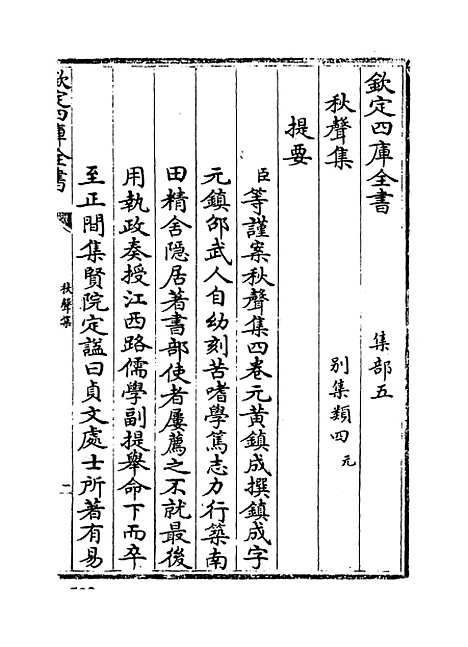 欽定四庫全書 集部五
秋聲集 別集類四 元
提要
臣等謹案秋聲集四卷元黃鎮成撰鎮成字
元鎮邵武人自幼刻苦嗜學篤志力行築南
田精舍隱居著書部使者屢薦之不就最後
用執政奏授江西路儒學副提舉命下而卒
至正間集賢院定諡曰貞文處士所著有易
欽定四庫全書
秋聲集